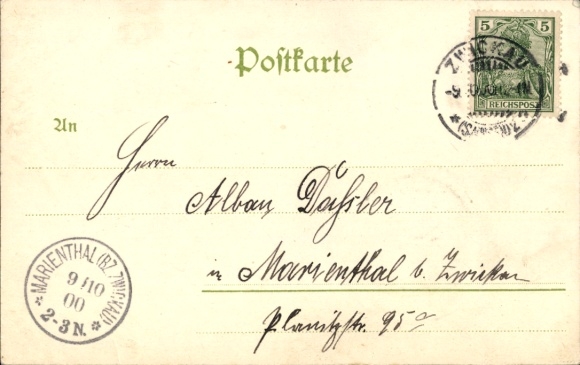 Postkarte
5 5
REICHSPOST
ZWICKAU
(SACHSEN) 2
An
Herrn
Alban Dässler
in Marienthal b. Zwickau
Planitzstr. 95a
MARIENTHAL (BZ. ZWICKAU)
9/10
00
2-3N.